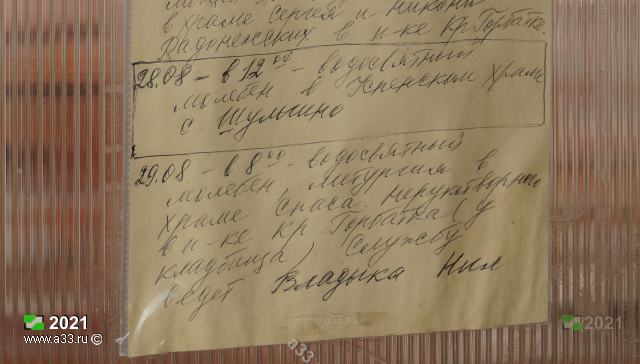 в храме Сергея и Никона
Радонежских в п-ке Кр Горбатке.
28.08 - в 12 00 - водосвятный
молебен в Успенском храме
с. Шульгино
29.08 - в 8 00 - водосвятный
молебен, литургия в
храме Спаса Нерукотворного
в п-ке Кр Горбатка (у
кладбища) Службу
ведет Владыка Нил
2021
www.a33.ru ©
www.a33.ru
a33
2021